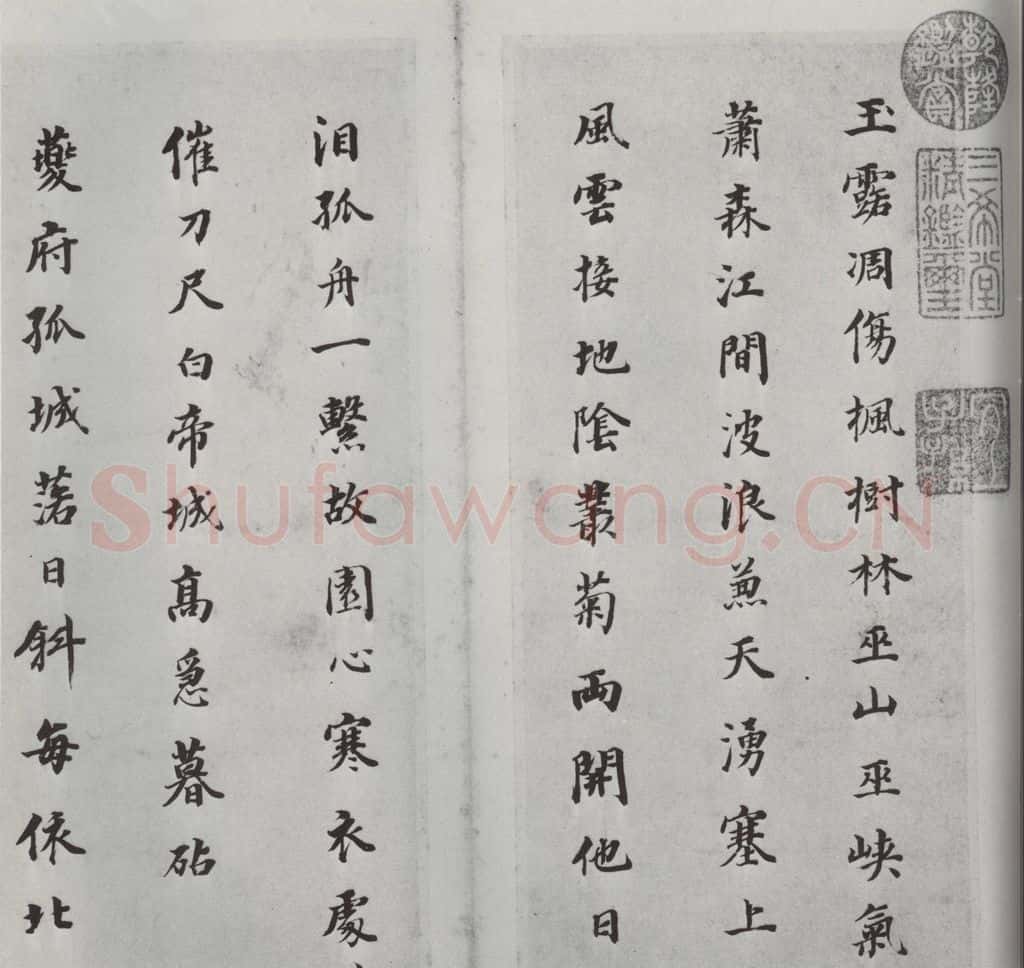 乾隆鑑賞
三希堂精鑑璽
宜子孫
玉露凋傷楓樹林巫山巫峽氣
蕭森江間波浪兼天湧塞上
風雲接地陰叢菊兩開他日
泪孤舟一繫故園心寒衣處
催刀尺白帝城高急暮砧
夔府孤城落日斜每依北
Shufawang.CN